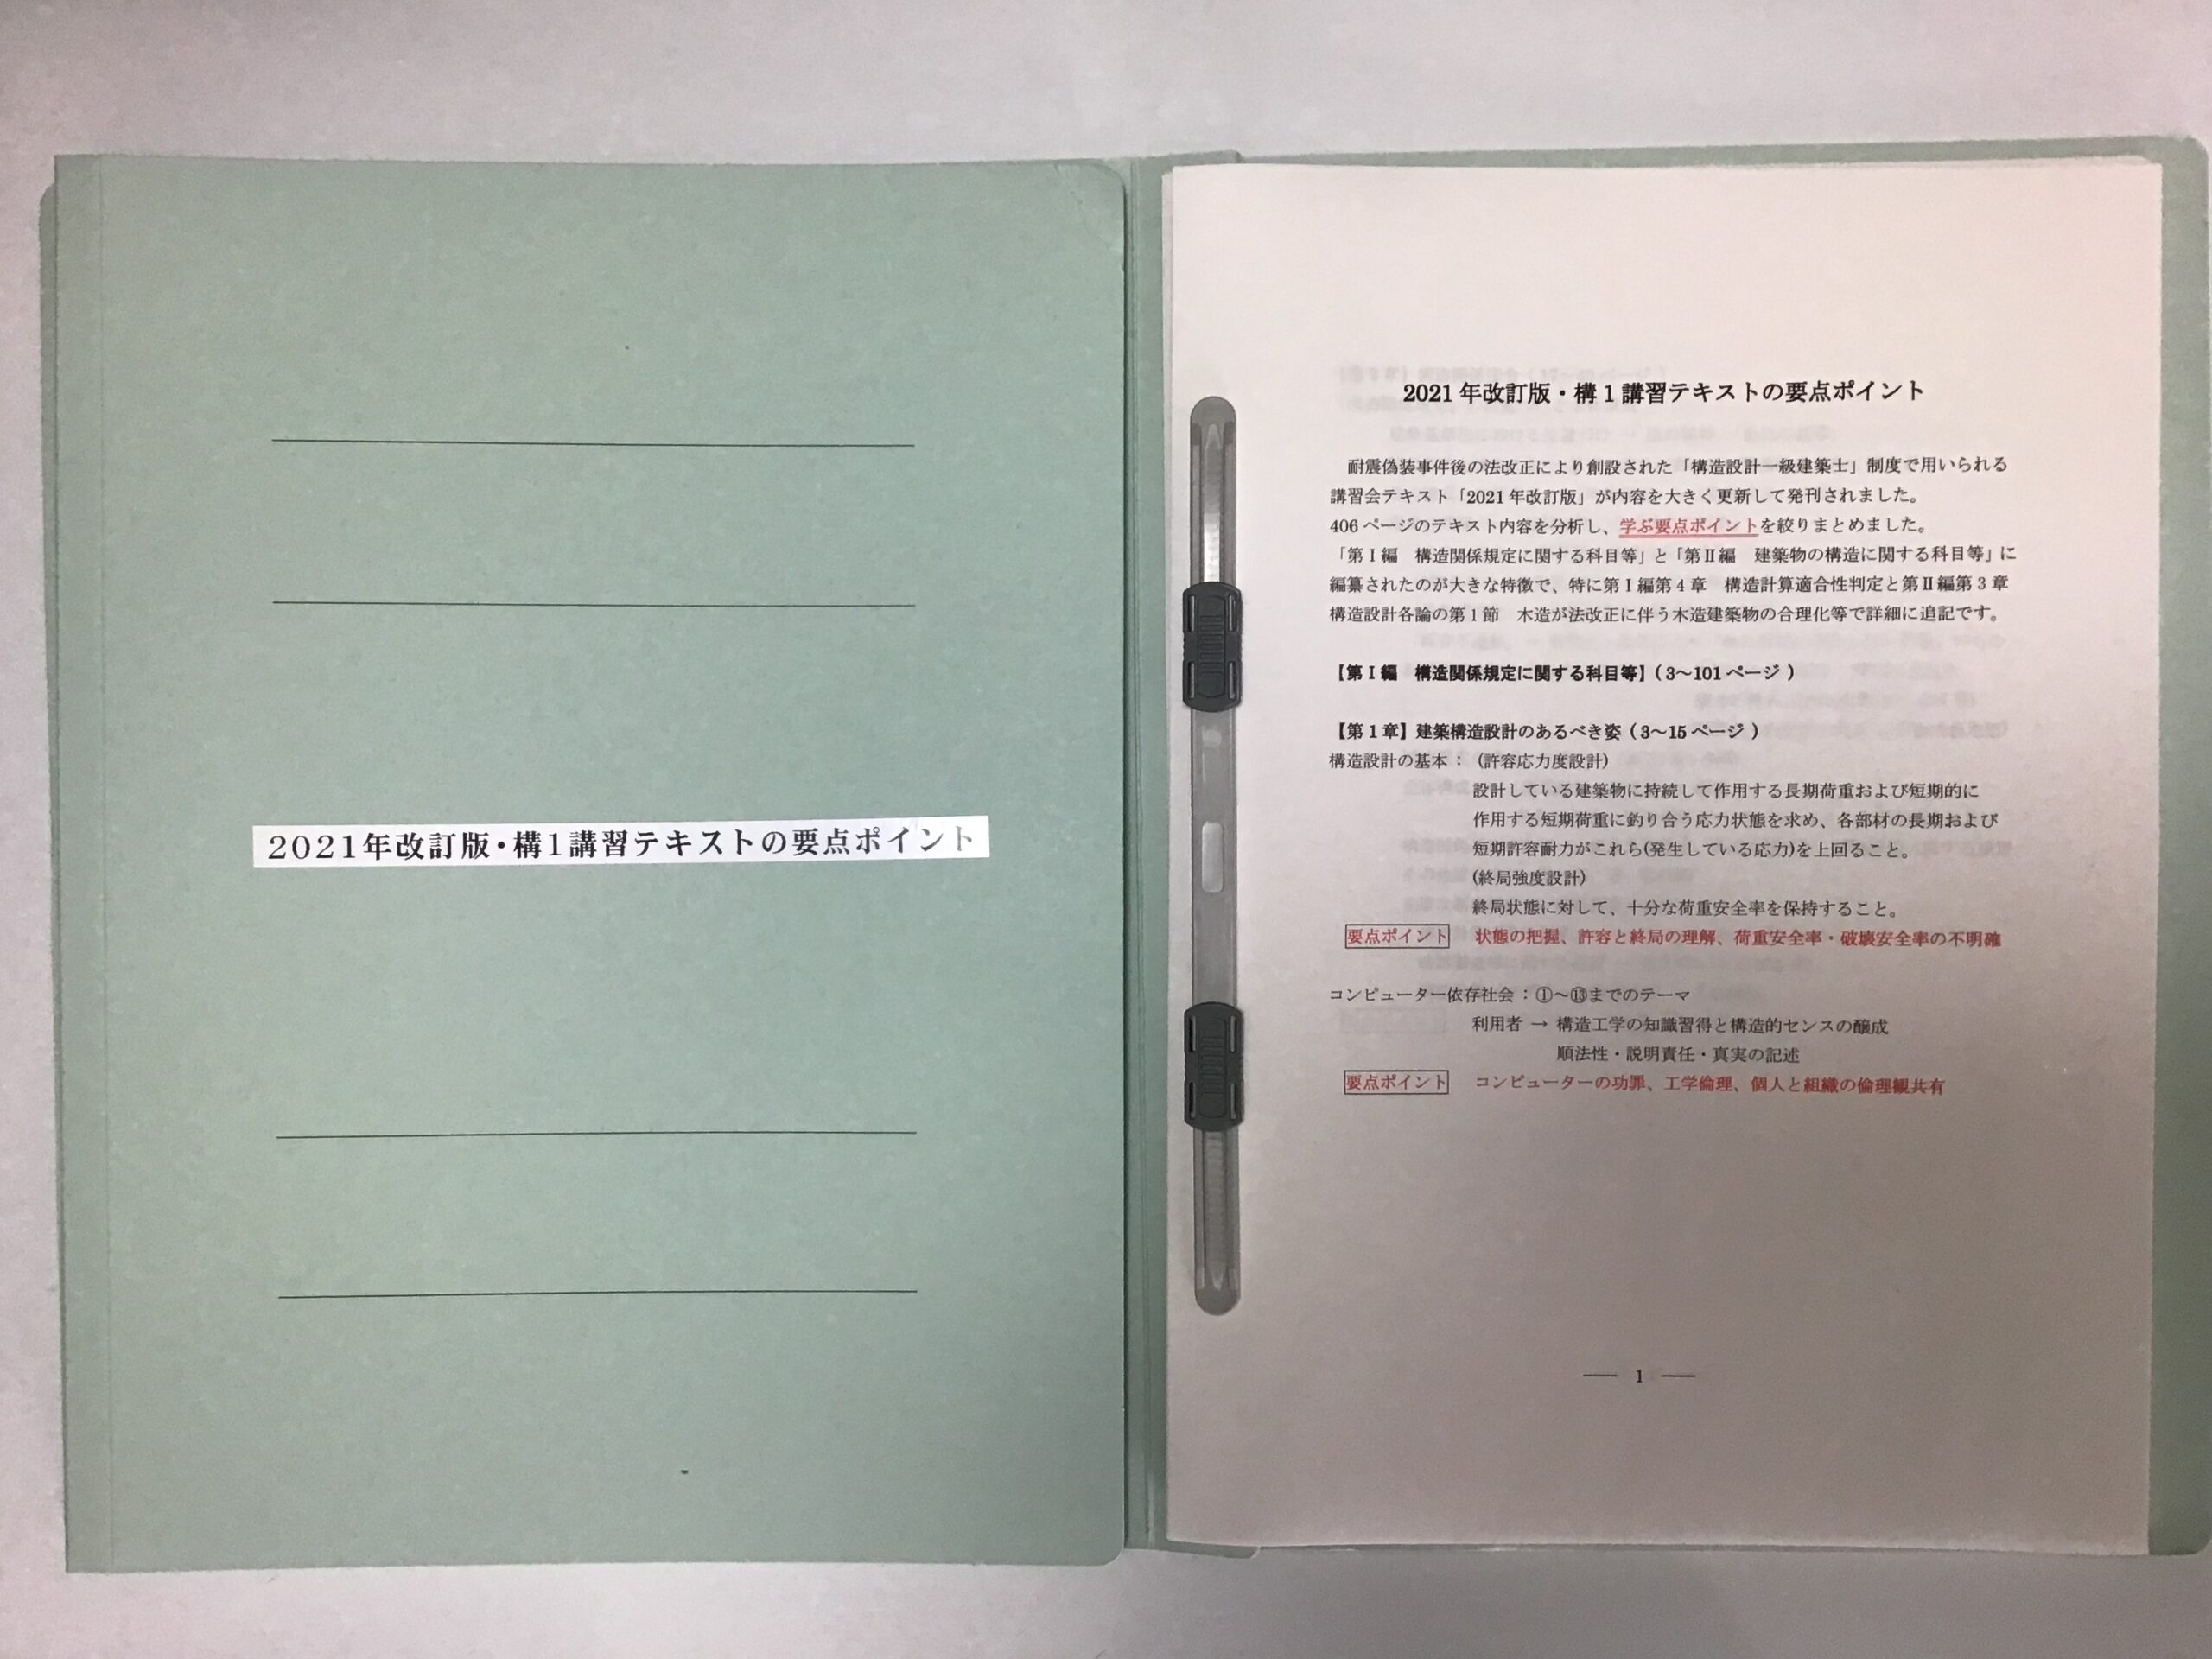 2021年改訂版・構1講習テキストの要点ポイント
2021年改訂版・構1講習テキストの要点ポイント
耐震偽装事件後の法改正により創設された「構造設計一級建築士」制度で用いられる
講習会テキスト「2021年改訂版」が内容を大きく更新して発刊されました。
406ページのテキスト内容を分析し、学ぶ要点ポイントを絞りまとめました。
「第Ⅰ編　構造関係規定に関する科目等」と「第Ⅱ編　建築物の構造に関する科目等」に
編纂されたのが大きな特徴で、特に第Ⅰ編第4章　構造計算適合性判定と第Ⅱ編第3章
構造設計各論の第1節　木造が法改正に伴う木造建築物の合理化等で詳細に追記です。
【第Ⅰ編　構造関係規定に関する科目等】（3～101ページ）
【第1章】建築構造設計のあるべき姿（3～15ページ）
構造設計の基本：（許容応力度設計）
設計している建築物に持続して作用する長期荷重および短期的に
作用する短期荷重に釣り合う応力状態を求め、各部材の長期および
短期許容耐力がこれら(発生している応力)を上回ること。
(終局強度設計)
終局状態に対して、十分な荷重安全率を保持すること。
要点ポイント　状態の把握、許容と終局の理解、荷重安全率・破壊安全率の不明確
コンピューター依存社会：①～⑬までのテーマ
利用者 → 構造工学の知識習得と構造的センスの醸成
順法性・説明責任・真実の記述
要点ポイント　コンピューターの功罪、工学倫理、個人と組織の倫理観共有
— 1 —